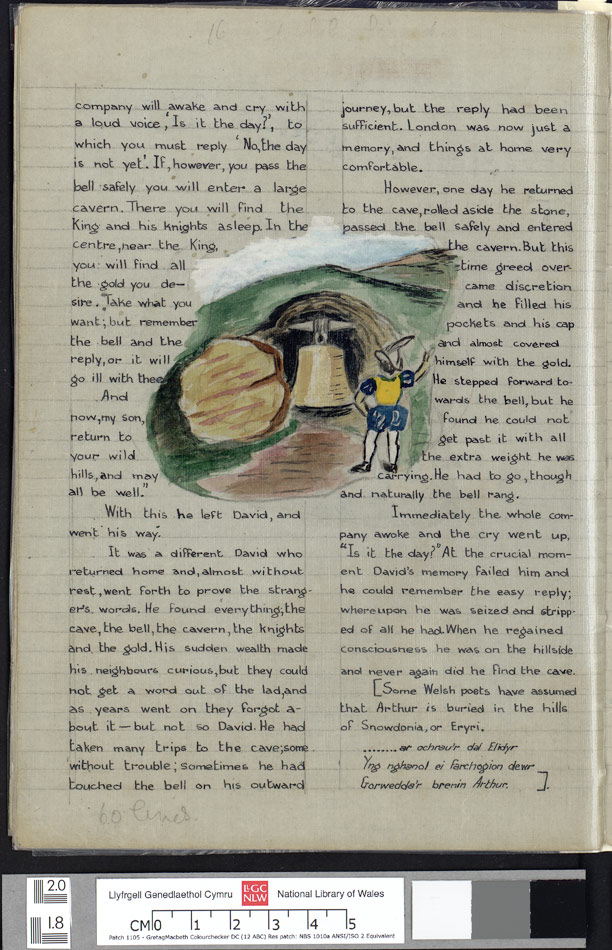 company will awake and cry with
a loud voice, 'Is it the day?', to
which you must reply 'No, the day
is not yet'. If, however, you pass the
bell safely you will enter a large
cavern. There you will find the
King and his knights asleep. In the
centre, near the King,
you will find all
the gold you de-
sire. Take what you
want; but remember
the bell and the
reply, or it will
go ill with thee
And
now, my son,
return to
your wild
hills, and may
all be well."
With this he left David, and
went his way.
It was a different David who
returned home and, almost without
rest, went forth to prove the strang-
er's words. He found everything; the
cave, the bell, the cavern, the knights
and the gold. His sudden wealth made
his neighbours curious, but they could
not get a word out of the lad, and
as years went on they forgot a-
bout it — but not so David. He had
taken many trips to the cave; some
without trouble; sometimes he had
touched the bell on his outward
60 lines.
journey, but the reply had been
sufficient. London was now just a
memory, and things at home very
comfortable.
However, one day he returned
to the cave, rolled aside the stone,
passed the bell safely and entered
the cavern. But this
time greed over-
came discretion
and he filled his
pockets and his cap
and almost covered
himself with the gold.
He stepped forward to-
wards the bell, but he
found he could not
get past it with all
the extra weight he was
carrying. He had to go, though
and naturally the bell rang.
Immediately the whole com-
pany awoke and the cry went up,
"Is it the day?" At the crucial mom-
ent David's memory failed him and
he could remember the easy reply;
whereupon he was seized and stripp-
ed of all he had. When he regained
consciousness he was on the hillside
and never again did he find the cave.
[Some Welsh poets have assumed
that Arthur is buried in the hills
of Snowdonia, or Eryri.
........ar ochrau'r dal Elidyr
Yng nghanol ei farchogion dewr
Gorwedda'r brenin Arthur. ].
2.0
1.8
Llyfrgell Genedlaethol Cymru
LlGC
NLW
National Library of Wales
CM 0 1 2 3 4 5
Patch 1105 - GretagMacbeth Colourchecker DC (12 ABC) Res patch: NBS 1010a ANSI/ISO 2 Equivalent